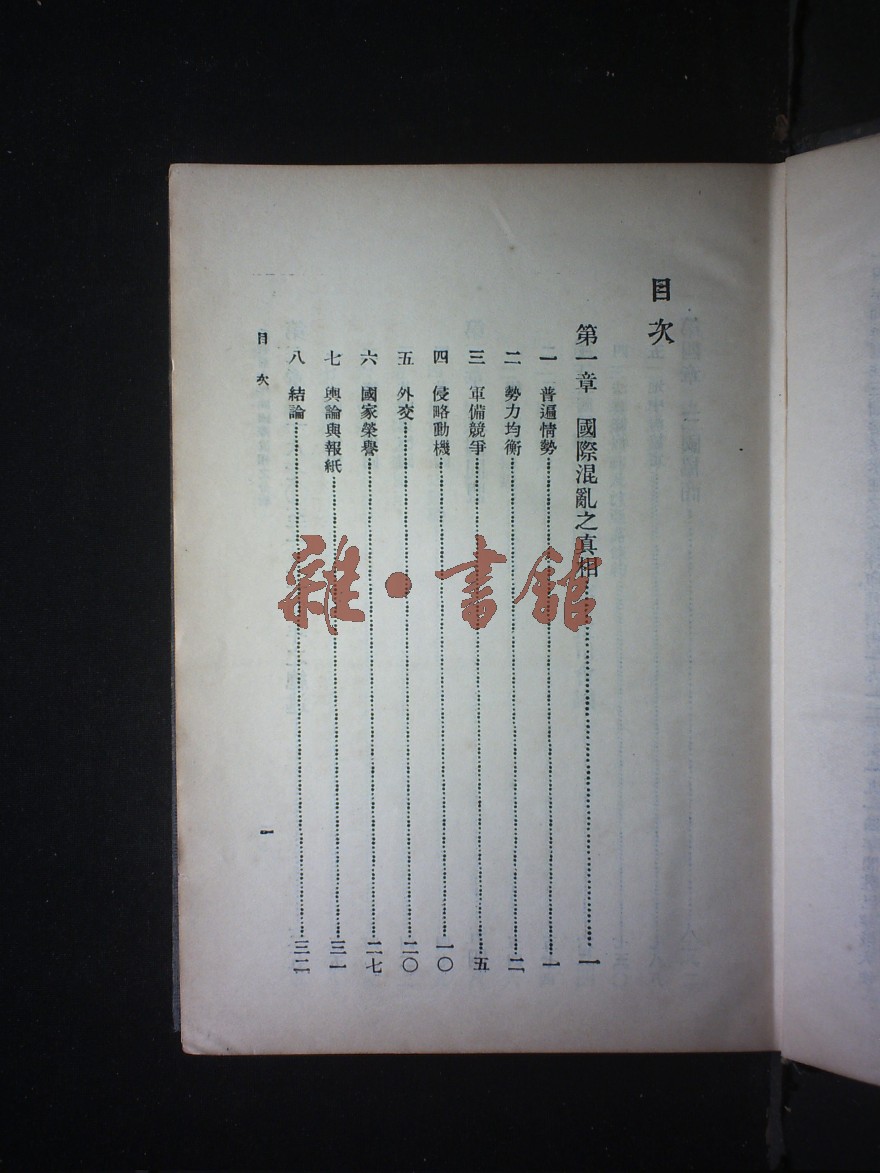 目次
第一章 國際混亂之真相……一
一 普遍情勢……一
二 勢力均衡……二
三 軍備競爭……五
四 侵略動機……一〇
五 外交……二〇
六 國家榮譽……二七
七 輿論與報紙……三一
八 結論……三二
目次
一
雜·書館